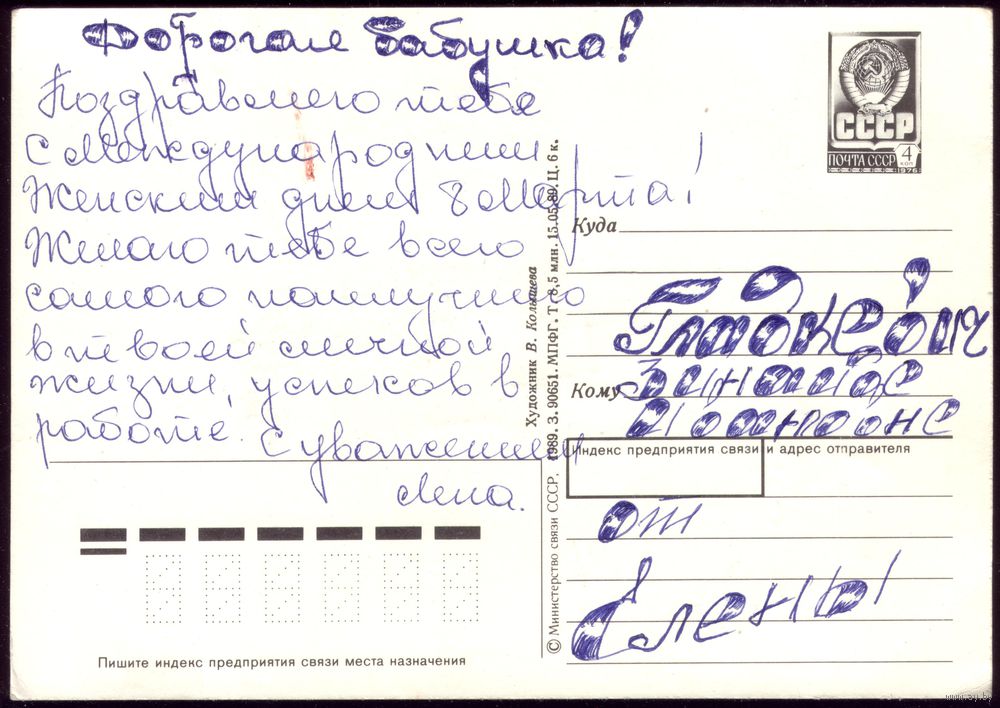 Дорогая Бабушка!
Поздравляю тебя
с Международным
Женским днём 8 Марта!
Желаю тебе всего
самого наилучшего
в твоей личной
жизни, успехов в
работе.
С уважением
Лена.
СССР
ПОЧТА СССР 4 КОП
1976
Куда
Кому
Зинаиде
Индекс предприятия связи и адрес отправителя
от
Елены
Художник В. Колышева
© Министерство связи СССР. 1989. З. 90651. МПФГ. Т. 8,5 млн. 15.05.89. Ц. 6 к.
Пишите индекс предприятия связи места назначения